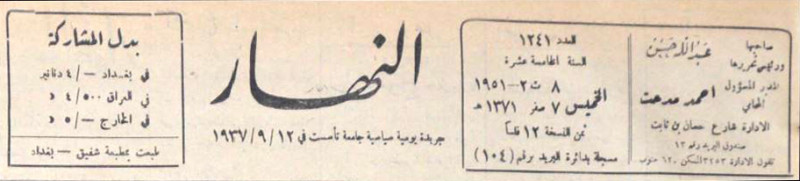 صاحبها
ورئيس تحريرها
عبدالله حسن
المدير المسؤول
المحامي
احمد مدحت
الادارة شارع حسان بن ثابت
صندوق البريد رقم ١٣
تلفون الادارة ٣٢٥٣ السكن
العدد ١٢٤١
السنة الخامسة عشرة
الخميس
٨ ت٢ - ١٩٥١
٧ صفر ١٣٧١ هـ
ثمن النسخة ١٢ فلساً
مسجلة بدائرة البريد برقم (١٠٤)
النهار
جريدة يومية سياسية جامعة تأسست في ١٢/٩/١٩٣٧
بدل المشاركة
في بغداد -/٤ دنانير
في العراق ٤/٥٠٠ د
في الخارج -/٥ د
طبعت بمطبعة شفيق - بغداد